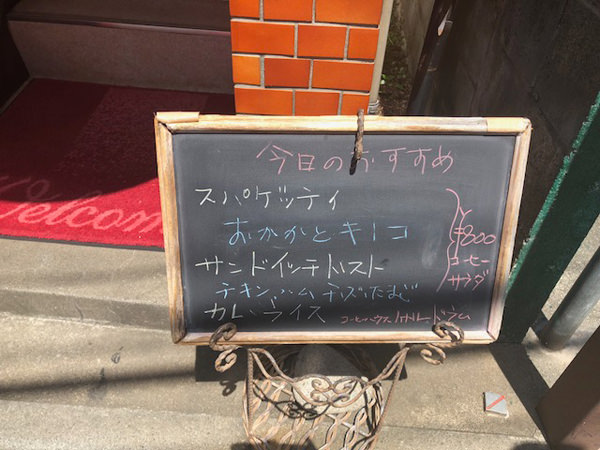 Welcome
今日のおすすめ
スパゲッティ
おかかとキノコ
サンドイッチトースト
チキン ハム チーズ たまご
カレーライス
¥800
コーヒー
サラダ
コーヒーハウス